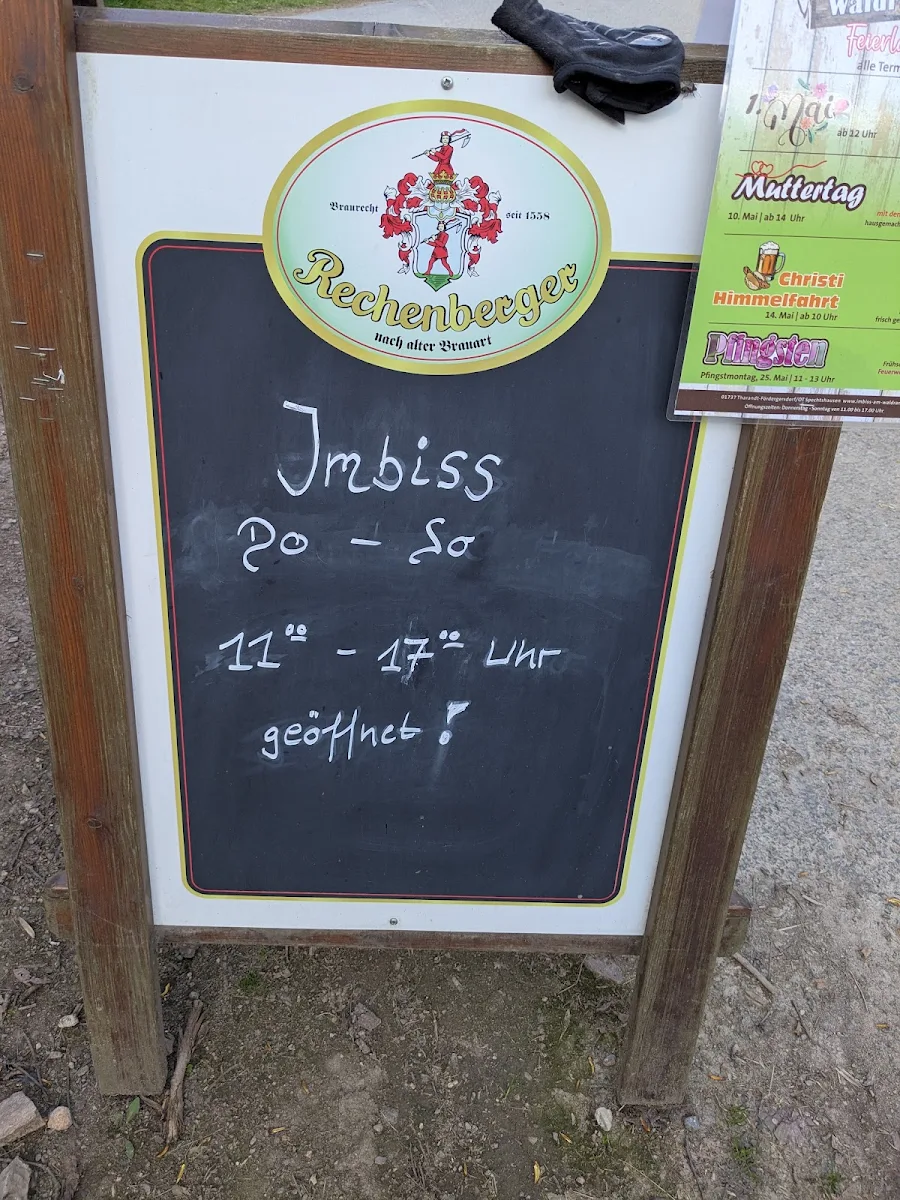 Braurecht seit 1558
Rechenberger
nach alter Brauart
Imbiss
Do - So
11⁰⁰ - 17⁰⁰ Uhr
geöffnet!
alle
1. Mai
ab 12 Uhr
Muttertag
10. Mai | ab 14 Uhr
Christi
Himmelfahrt
14. Mai | ab 10 Uhr
Pfingsten
Pfingstmontag, 25. Mai | 11 - 13 Uhr
01737 Tharandt-Fördergersdorf/OT Spechtshausen
Öffnungszeiten: Donnerstag - Sonntag von 11.00 bis 17.00 Uhr